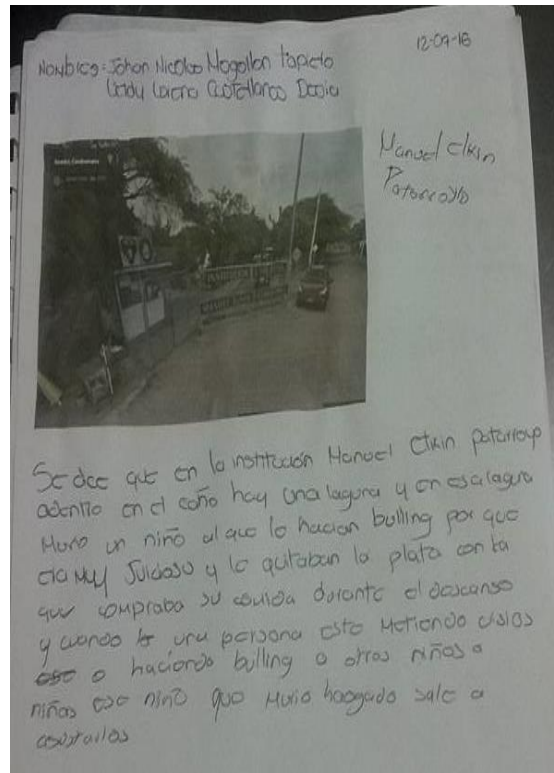 12-09-16
Nombres: Johan Nicolas Mogollon Tapieto
Leidy Lorena Castellanos
Manuel elkin
Patarroyo
Se dice que en la institución Manuel Elkin patarroyo
adentro en el caño hay una laguna y en esa laguna
Murio un niño al que le hacian bulling por que
era muy Juisioso y le quitaban la plata con la
que compraba su comida durante el descanso
y cuando una persona esta Metiendo visios
o haciendo bulling a otros niños o
niñas ese niño que Murio haogado sale a
asustarlos